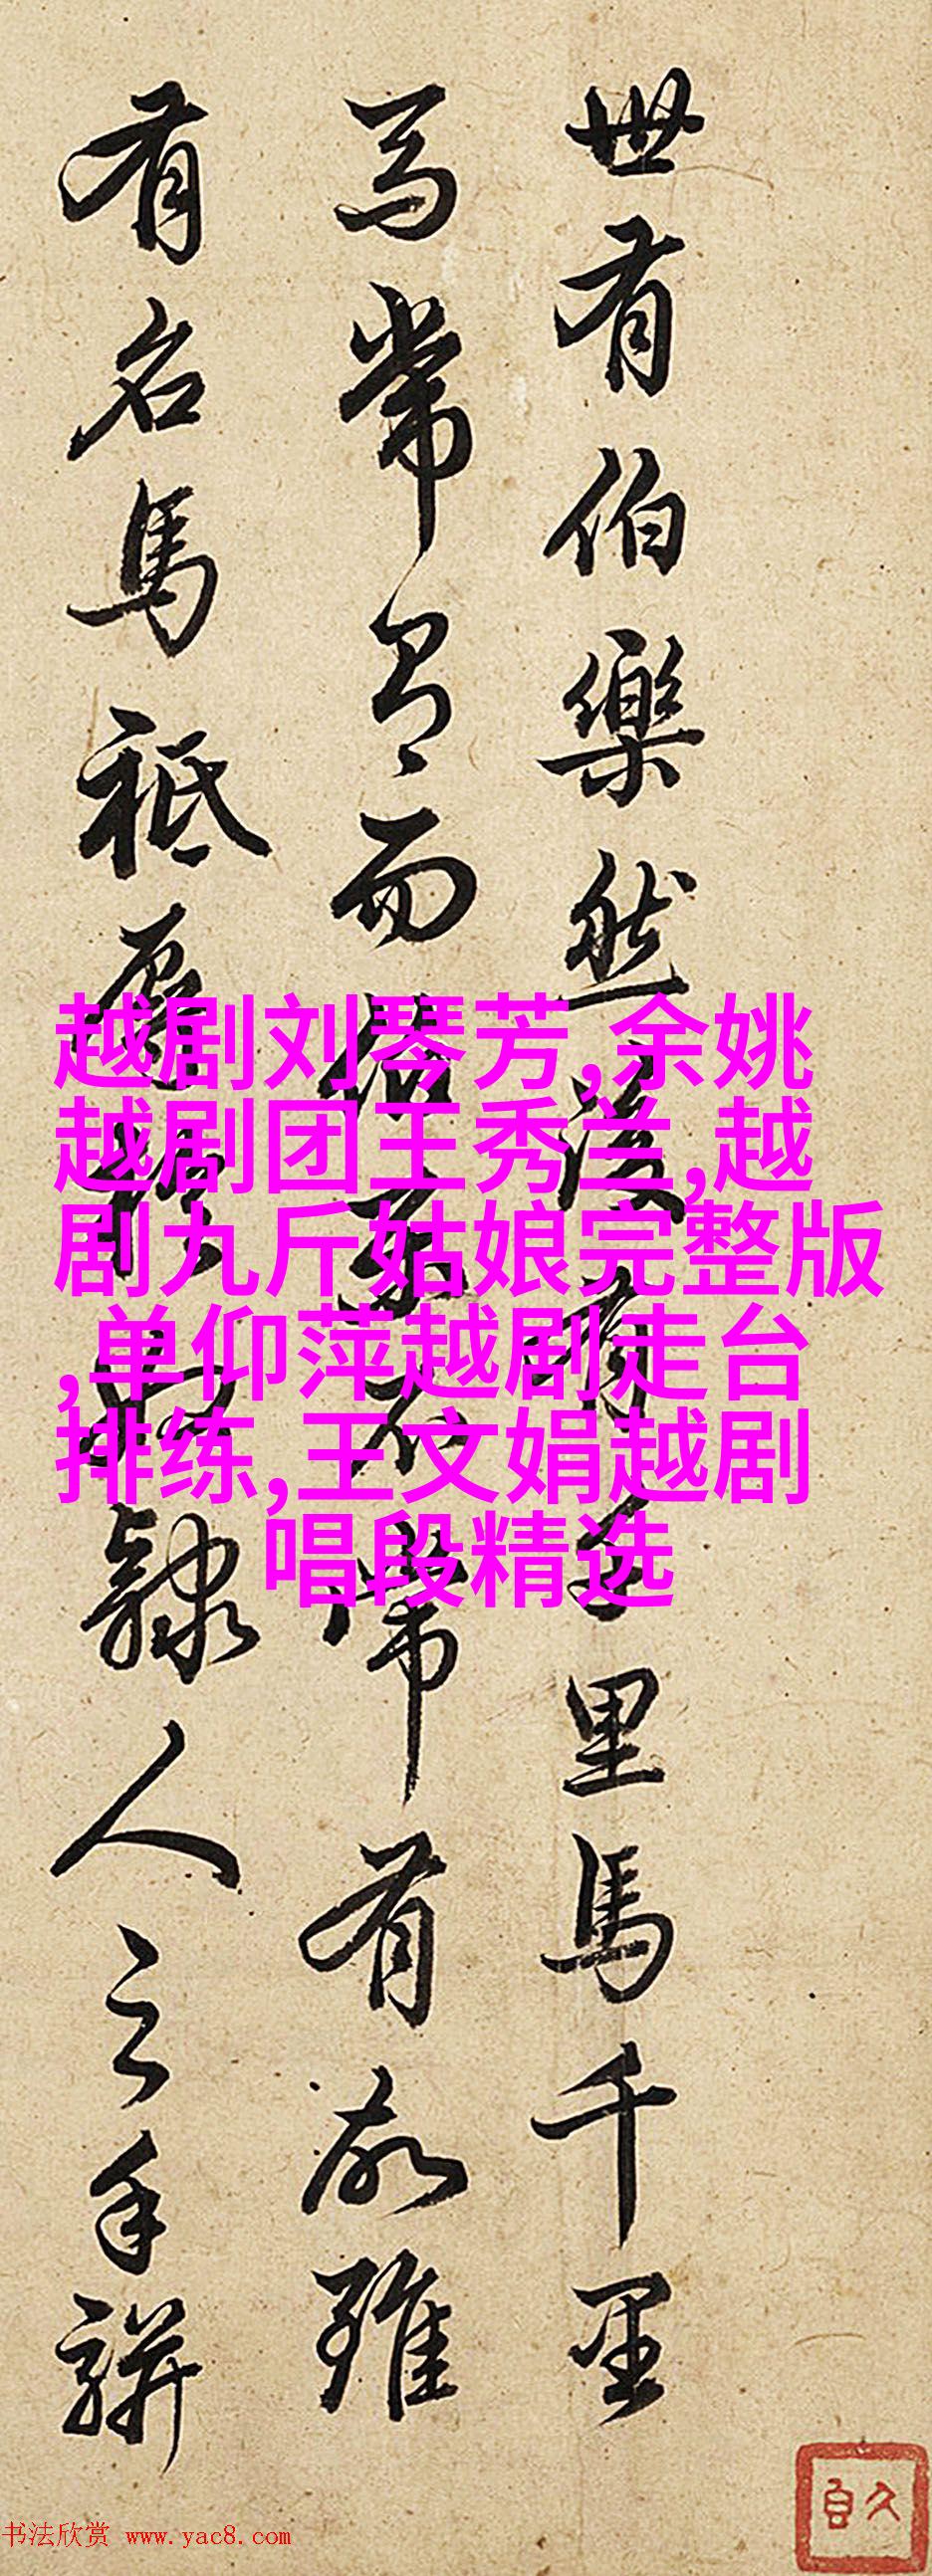 世有伯樂然後有千里馬千里
馬常有而伯樂不常有故雖
有名馬祗辱於奴隸人之手駢
越剧刘琴芳,余姚
越剧团王秀兰,越
剧九斤姑娘完整版
,单仰萍越剧走台
排练,王文娟越剧
唱段精选
书法欣赏 www.yac8.com